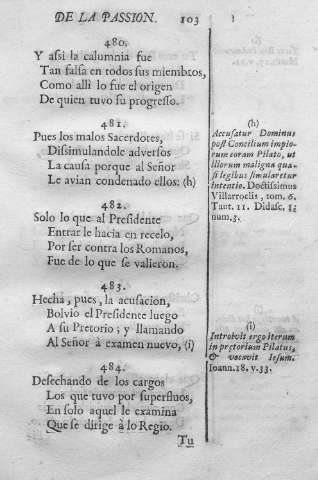 DE LA PASSION. 103
480.
Y assi la calumnia fue
Tan falsa en todos sus miembros,
Como alli lo fue el origen
De quien tuvo su progresso.
481.
Pues los malos Sacerdotes,
Dissimulandole adversos
La causa porque al Señor
Le avian condenado ellos: (h)
482.
Solo lo que al Presidente
Entrar le hacia en recelo,
Por ser contra los Romanos,
Fue de lo que se valieron.
483.
Hecha, pues, la acusacion,
Bolvio el Presidente luego
A su Pretorio; y llamando
Al Señor à examen nuevo, (i)
484.
Desechando de los cargos
Los que tuvo por superfluos,
En solo aquel le examina
Que se dirige à lo Regio.
Tu
(h)
Accusatur Dominus
post Concilium impio-
rum coram Pilato, ut
illorum maligna qua-
si legibus simularetur
intentio. Doctissimus
Villarroelis, tom. 6.
Taut. 11. Didasc. 1;
num. 3.
(i)
Introivit ergo iterum
in prætorium Pilatus,
& vocavit Iesum.
Ioann. 18. v. 33.